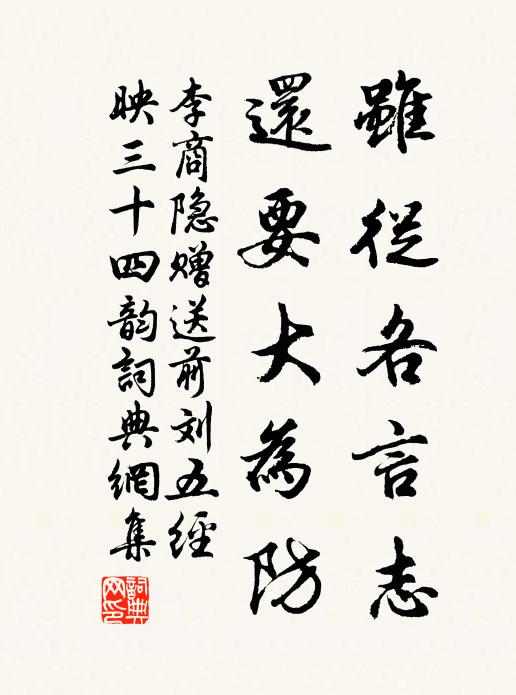 雖從各言志
還要大為防
李商隐赠送前刘五經
映三十四韵詞典網集
詞典网印